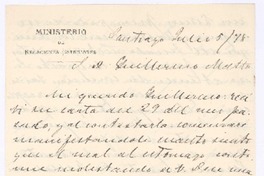 MINISTERIO
DE
RELACIONES EXTERIORES
Santiago Julio 5/78
S. D. Guillermo Matta
Mi querido Guillermo: reci
bí su carta del 29 del mes pa
sado, y al contestarla comienzo
manifestándole cuanto siento
que el mal al estómago conti
núe molestando a V.